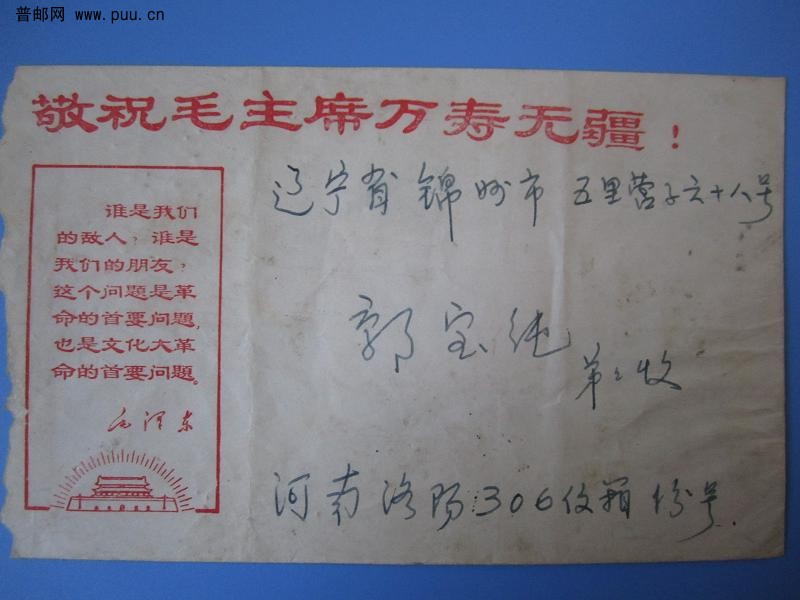 普邮网 www.puu.cn
敬祝毛主席万寿无疆！
谁是我们
的敌人？谁是
我们的朋友？
这个问题是革
命的首要问题，
也是文化大革
命的首要问题。
毛泽东
辽宁省锦州市 五里营子六十八号
郭宝纯
弟弟收
河南洛阳306信箱 号